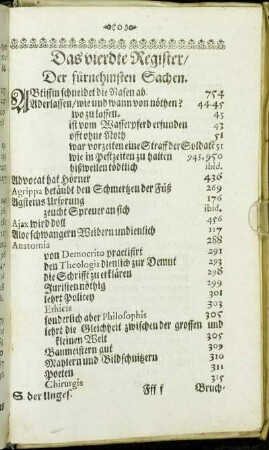 Das vierdte Register/
Der fürnehmsten Sachen.
ABtissin schneidet die Nasen ab. 754
Aderlassen/wie und wann von nöthen? 44 45
wo zu lassen. 45
ist vom Wasserpferd erfunden 43
offt ohne Noth 51
war vor zeiten eine Straff der Soldatē 51
wie in Pestzeiten zu halten 943, 950
bißweilen tödtlich ibid.
Advocat hat Hörner 436
Agrippa betäubt den Schmertzen der Füß 269
Agsteins Ursprung 176
zeucht Spreuer an sich ibid.
Ajax wird doll 456
Aloe schwangern Weibern undienlich 117
Anatomia 288
von Democrito practisirt 291
den Theologis dienlich zur Demut 293
die Schrifft zu erklären 298
Juristen nöthig 299
lehrt Policey 301
Ethicis 303
sonderlich aber Philosophis 305
lehrt die Gleichheit zwischen der grossen und
kleinen Welt 305
Baumeistern gut 309
Mahlern und Bildschnitzern 310
Poeten 311
Chirurgis 315
S. der Ungef. Fff f Bruch-